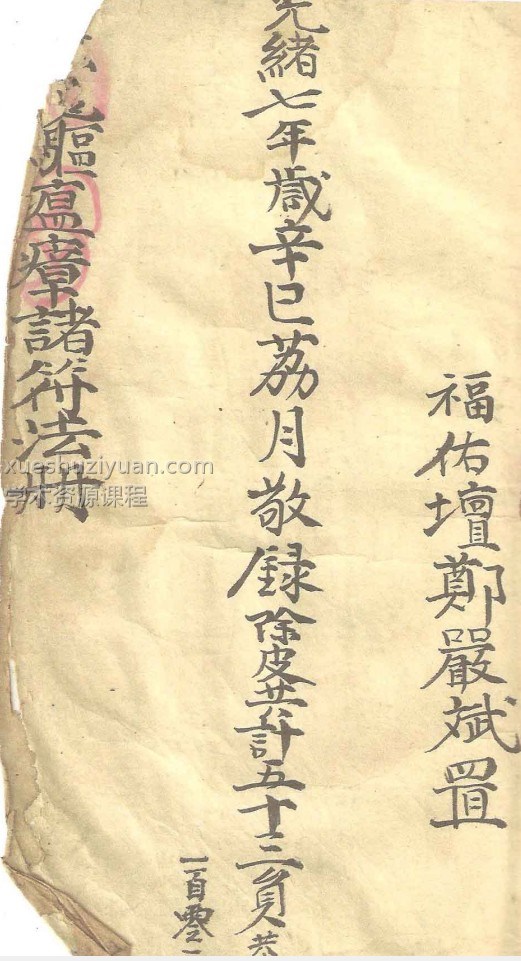 福佑壇鄭嚴斌置
光緒七年歲辛巳荔月敬録除皮共計五十三頁
一百零
驅瘟瘴諸符法冊
xueshuziyuan.com
学术资源课程